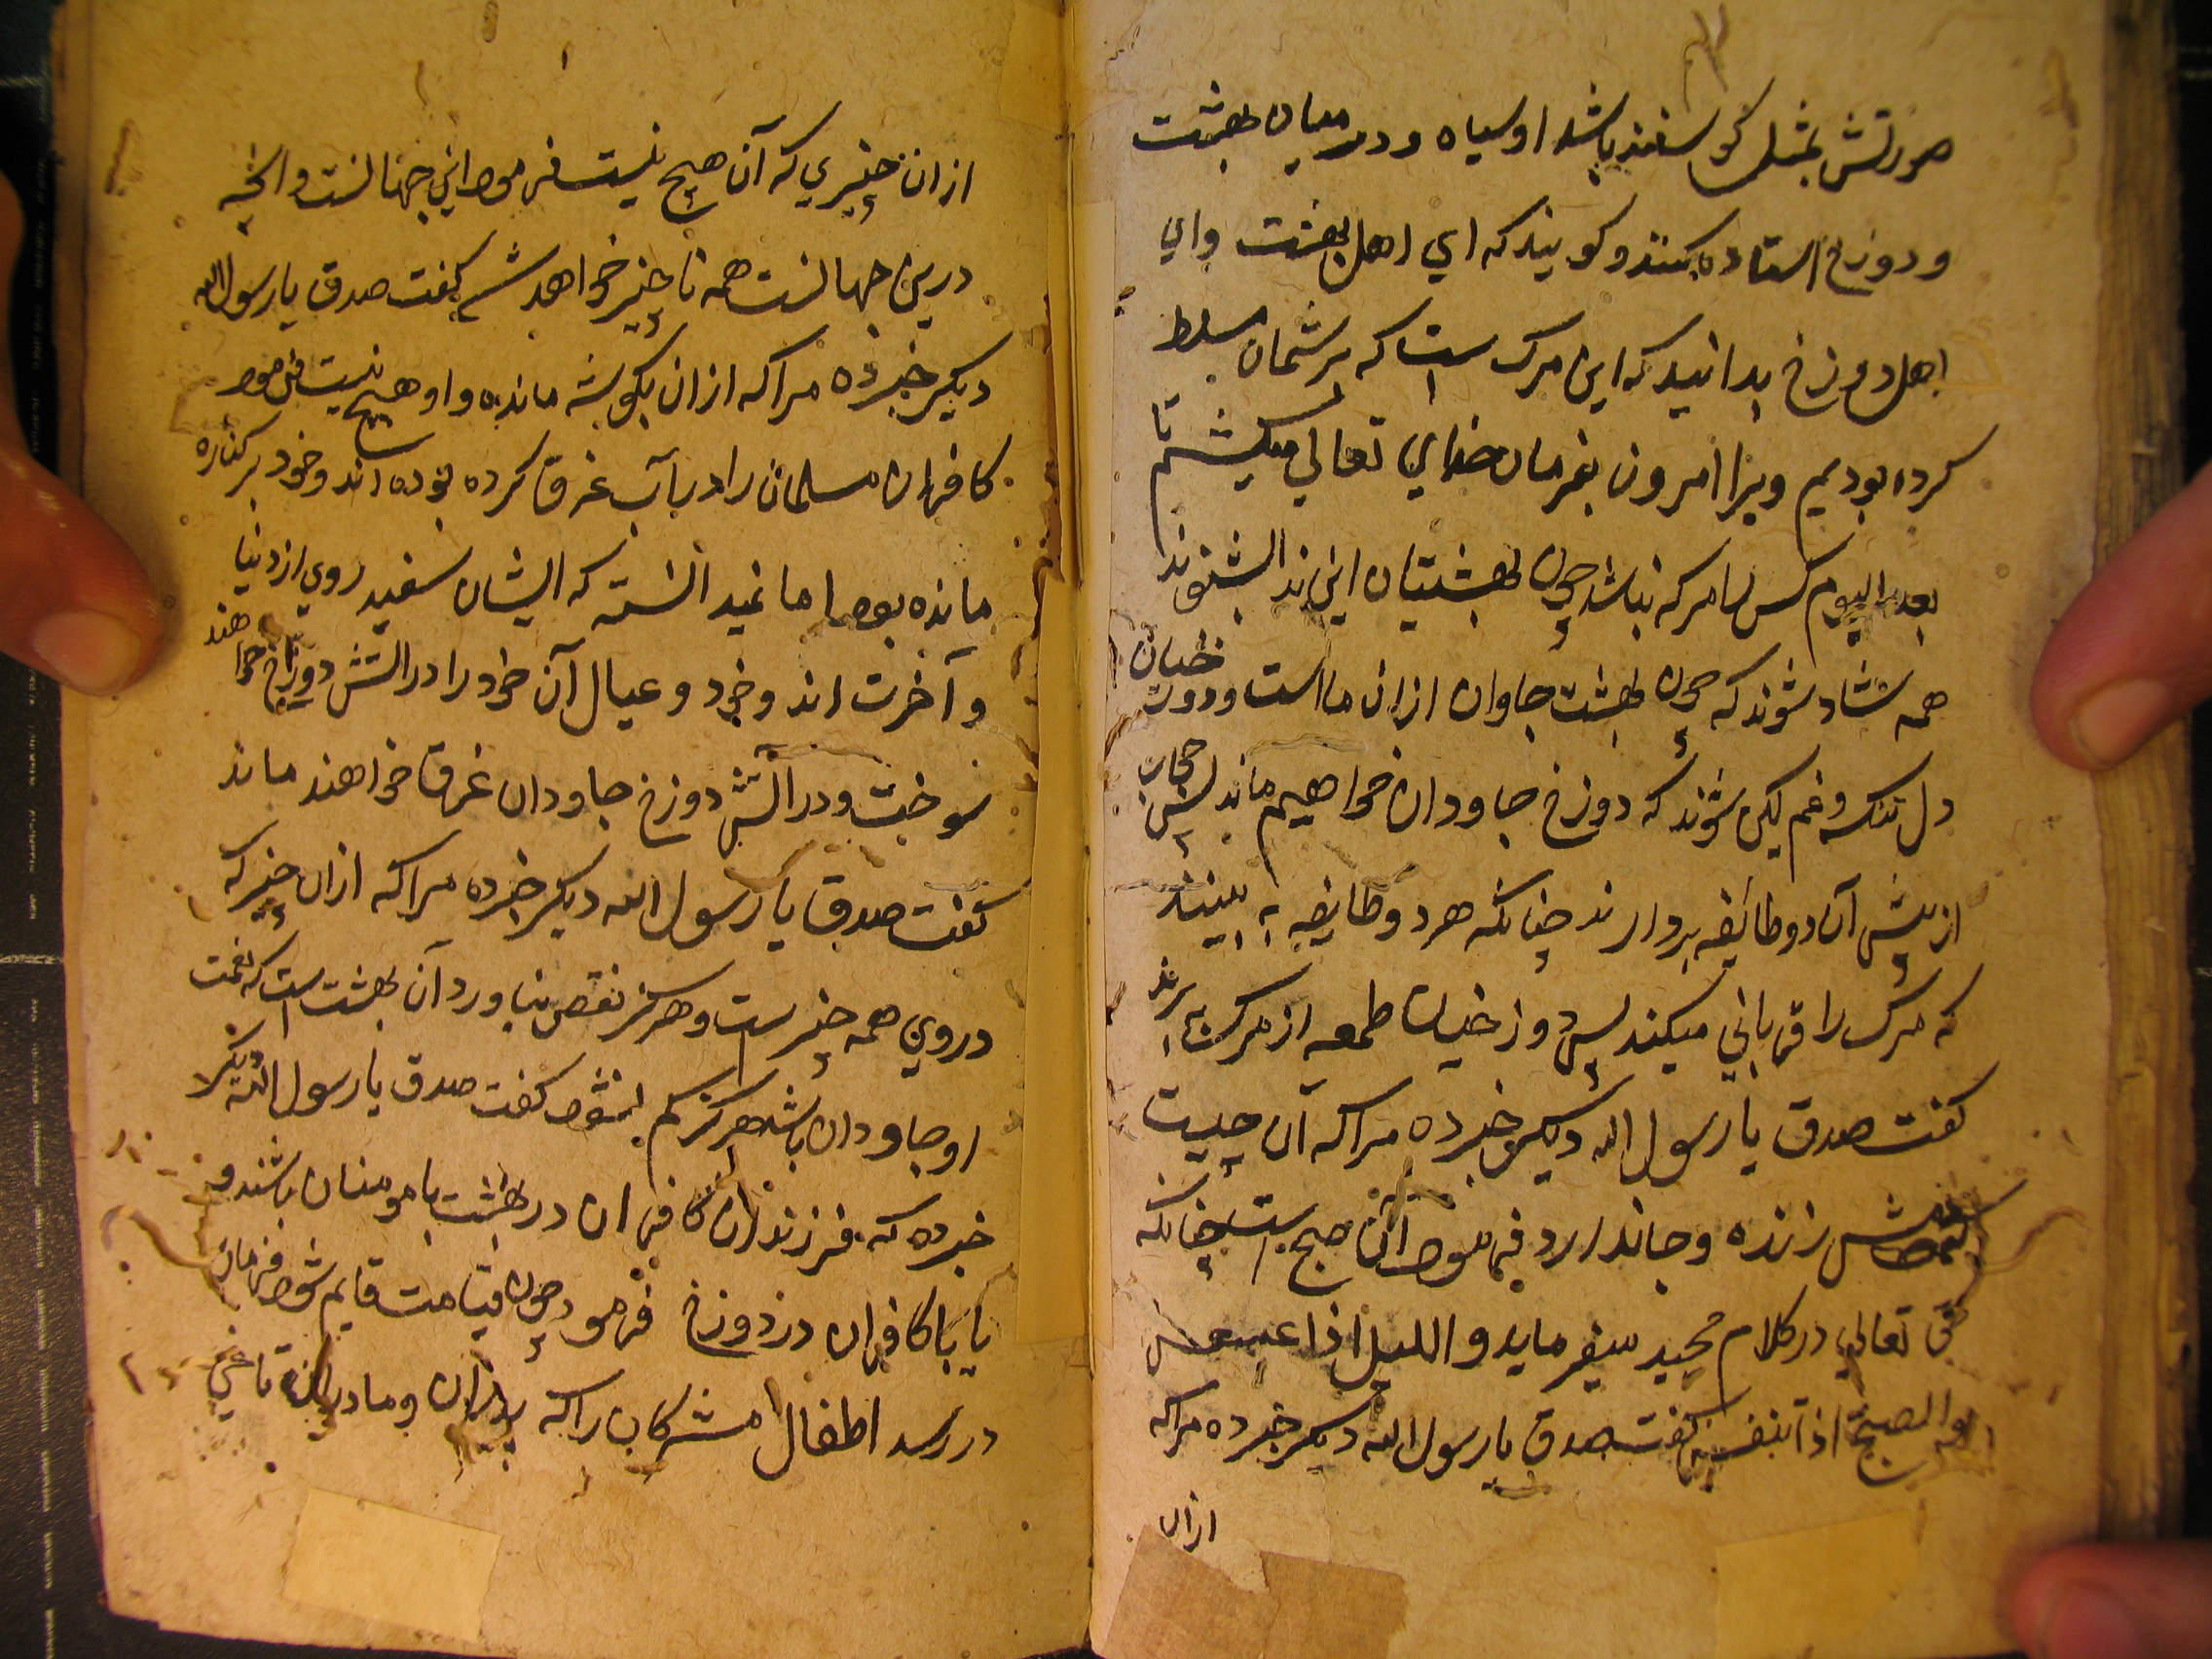 صورتش بمثل کوسفند باشد اوسیاه ودر میان بهشت
ودوزخ استاده کنند وکویند که ای اهل بهشت وای
اهل دوزخ بدانید که این مرک ست که برشمایان مسلط
کرده بودیم ویرا امروز بفرمان خدای تعالی میکشیم تا
بعد الیوم کس را مرک نباشد چون بهشتیان این ندا بشنوند
همه شاد شوند که چون بهشت جاوان ازان ما است ودوزخیان
دل تنک وغم کین شوند که دوزخ جاودان خواهیم ماند پس حجاب
از پیش آن دو طائفه بردارند چنانکه هر دو طایفه به بینند
که مرک را قربانی میکند پس دوزخیان طمعه از مرک ببرند
کفت صدق یا رسول الله دیکر خبر ده مرا که آن چیست
زنده وجاندارد فرمود آن صبح ست چنانکه
حق تعالی در کلام مجید میفرماید واللیل اذا عسعس
والصبح اذا تنفس کفت صدق یا رسول الله دیکر خبر ده مرا که
ازان
ازان چیزی که آن هیچ نیست فرمود این جهانست وانچه
درین جهانست همه ناچیز خواهد شد کفت صدق یا رسول الله
دیکر خبر ده مرا که ازان بکوشه مانده واو هیچ نیست فرمود
کافران مسلمان را در آب غرق کرده بوده اند وخود بر کناره
مانده بود اما نمیدانسته که ایشان سفید روی از دنیا
وآخرت اند وخود وعیال آن خود را در آتش دوزخ خواهند
سوخت ودر آتش دوزخ جاودان غرق خواهند ماند
کفت صدق یا رسول الله دیکر خبر ده مرا که ازان چیز که
در وی همه چیز ست وهرکز نقص نیاورد آن بهشت است که نعمت
او جاودان باشد هرکز کم نشود کفت صدق یا رسول الله دیکر
خبر ده که فرزندان کافران در بهشت با مومنان باشند و
یا با کافران در دوزخ فرمود چون قیامت قایم شود فرمان
در رسد اطفال مشرکان را که پدران ومادران